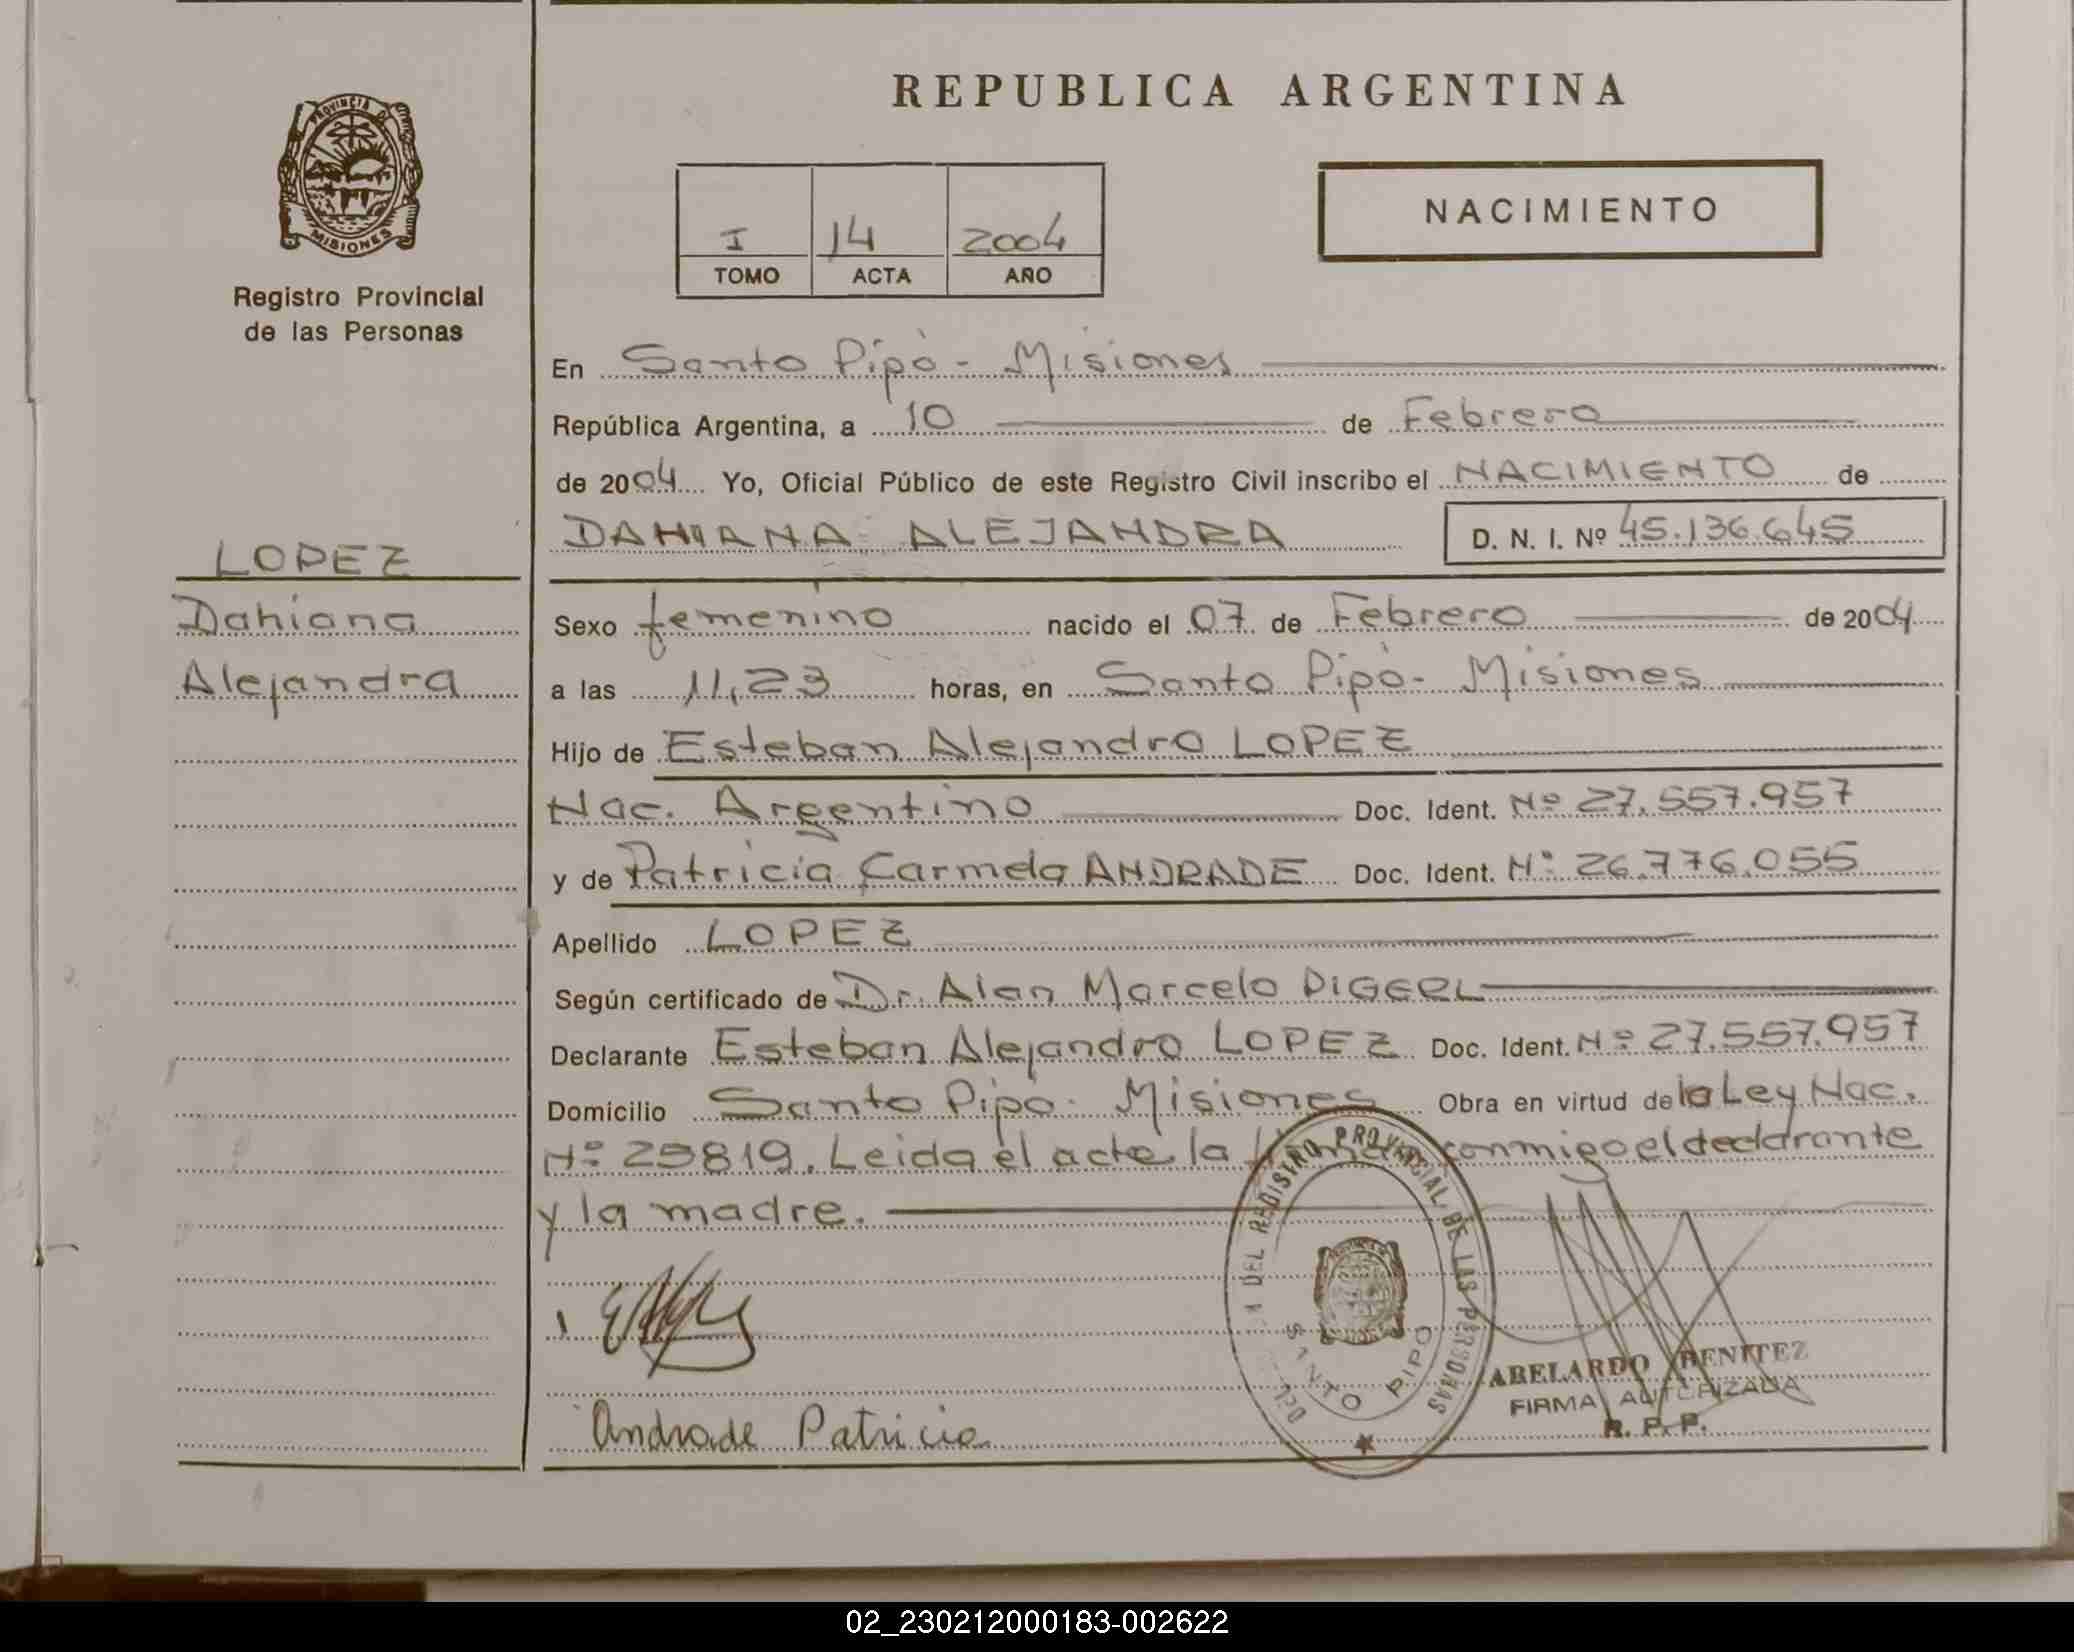 REPUBLICA ARGENTINA
PROVINCIA DE
MISIONES
Registro Provincial
de las Personas
I 14 2004
TOMO ACTA AÑO
NACIMIENTO
En Santo Pipó - Misiones
República Argentina, a 10 de Febrero
de 2004 Yo, Oficial Público de este Registro Civil inscribo el NACIMIENTO de
DAHIANA ALEJANDRA D. N. I. Nº 45.136.645
LOPEZ
Dahiana
Alejandra
Sexo femenino nacido el 07 de Febrero de 2004
a las 11,23 horas, en Santo Pipó - Misiones
Hijo de Esteban Alejandro LOPEZ
Nac. Argentino Doc. Ident. Nº 27.557.957
y de Patricia Carmela ANDRADE Doc. Ident. Nº 26.776.055
Apellido LOPEZ
Según certificado de Dr. Alan Marcelo DIGERL
Declarante Esteban Alejandro LOPEZ Doc. Ident. Nº 27.557.957
Domicilio Santo Pipó - Misiones Obra en virtud de la Ley Nac.
Nº 25819. Leida el acta la firman conmigo el declarante
y la madre.
DEL REGISTRO PROVINCIAL DE LAS PERSONAS
SANTO PIPO
ABELARDO BENITEZ
FIRMA AUTORIZADA
R. P. P.
Andrade Patricia
02_230212000183-002622